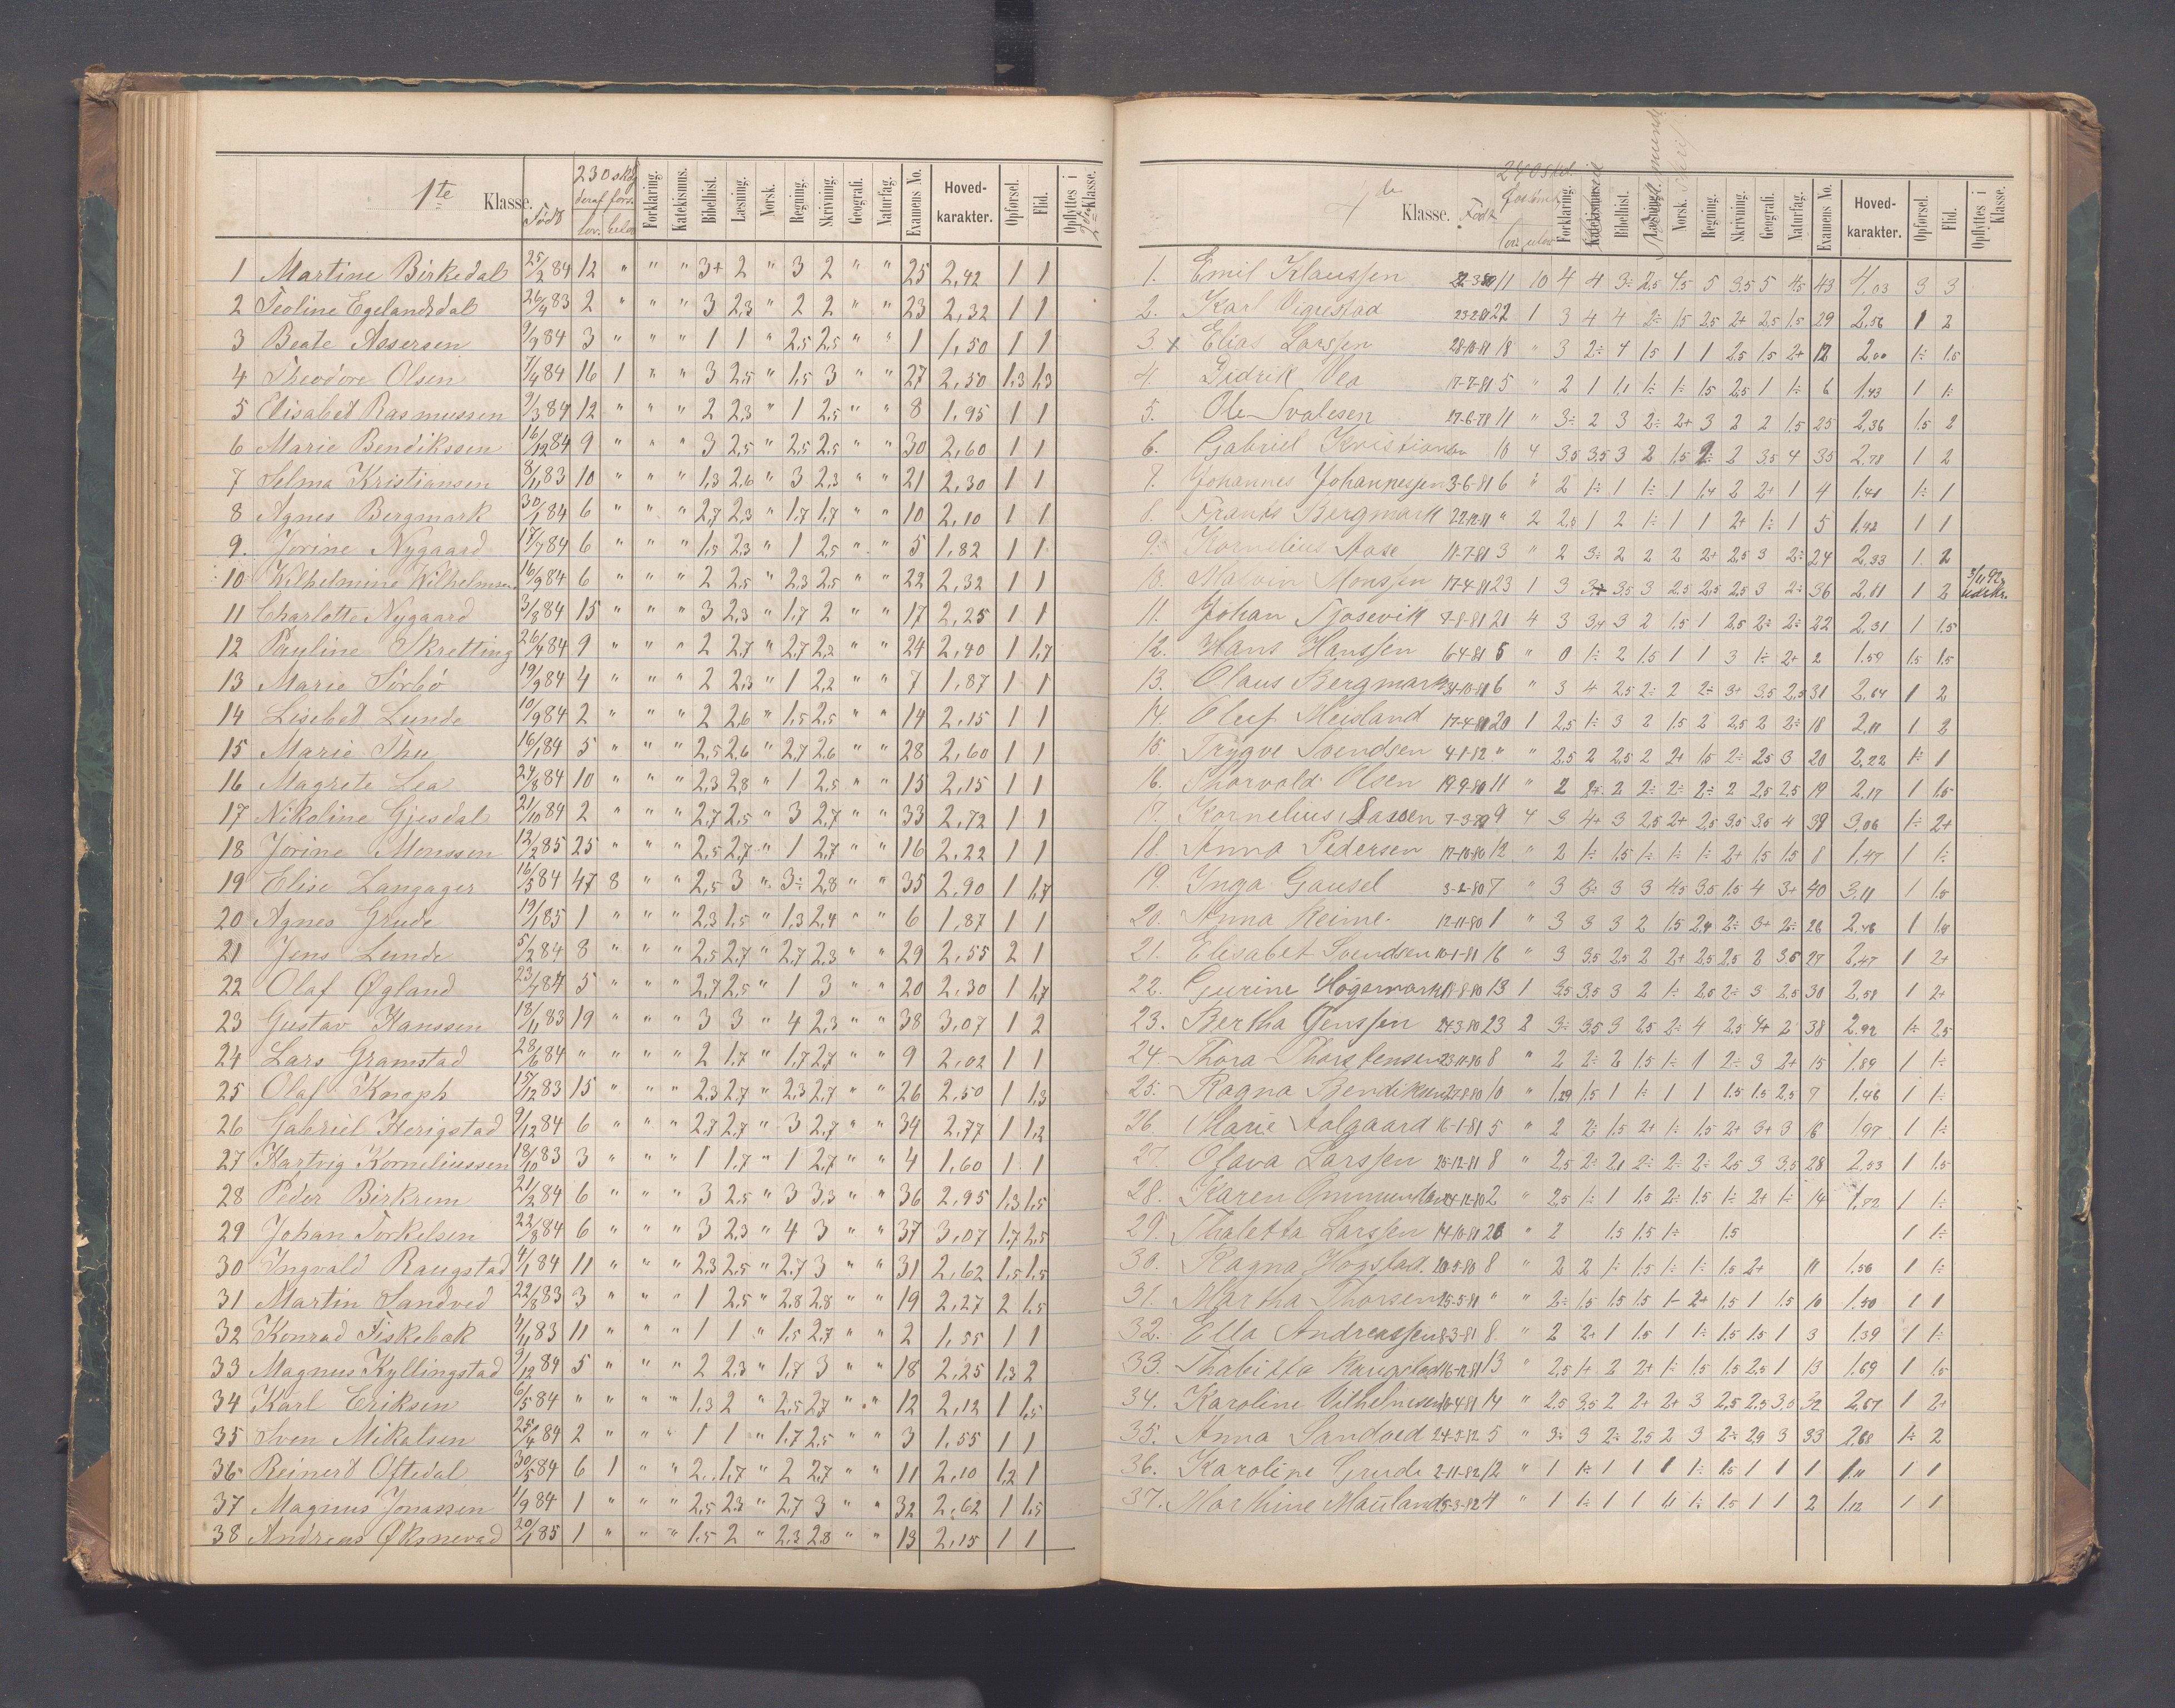 1te Klasse. Født 230 skdg deraf fors. lov. ulov. Forklaring. Katekismus. Bibelhist. Læsning. Norsk. Regning. Skrivning. Geografi. Naturfag. Examens No. Hoved-karakter. Opførsel. Flid. Opflyttes i 2den Klasse.
1 Martine Birkedal 25/2 84 12 " " " 3+ 2 " 3 2 " " 25 2,42 1 1
2 Teoline Egelandsdal 26/4 83 2 " " " 3 2,3 " 2 2 " " 23 2,32 1 1
3 Beate Assersen 9/9 84 3 " " " 1 1 " 2,5 2,5 " " 1 1,50 1 1
4 Theodore Olsen 7/4 84 16 1 " " 3 2,5 " 1,5 3 " " 27 2,50 1,3 1,3
5 Elisabet Rasmussen 9/3 84 12 " " " 2 2,3 " 1 2,5 " " 8 1,95 1 1
6 Marie Bendikssen 16/12 84 9 " " " 3 2,5 " 2,5 2,5 " " 30 2,60 1 1
7 Selma Kristiansen 8/11 83 10 " " " 1,3 2,6 " 3 2,3 " " 21 2,30 1 1
8 Agnes Bergmark 30/1 84 6 " " " 2,7 2,3 " 1,7 1,7 " " 10 2,10 1 1
9. Jorine Nygaard 17/7 84 6 " " " 1,5 2,3 " 1 2,5 " " 5 1,82 1 1
10 Wilhelmine Wilhelmsen 16/9 84 6 " " " 2 2,5 " 2,3 2,5 " " 22 2,32 1 1
11 Charlotte Nygaard 3/8 84 15 " " " 3 2,3 " 1,7 2 " " 17 2,25 1 1
12 Pauline Skretting 26/4 84 9 " " " 2 2,7 " 2,7 2,2 " " 24 2,40 1 1,7
13 Marie Sörbö 19/9 84 4 " " " 2 2,3 " 1 2,2 " " 7 1,87 1 1
14 Lisebet Lunde 10/9 84 2 " " " 2 2,6 " 1,5 2,5 " " 14 2,15 1 1
15 Marie Thu 16/1 84 5 " " " 2,5 2,6 " 2,7 2,6 " " 28 2,60 1 1
16 Magrete Lea 24/8 84 10 " " " 2,3 2,8 " 1 2,5 " " 15 2,15 1 1
17 Nikoline Gjesdal 21/10 84 2 " " " 2,7 2,5 " 3 2,7 " " 33 2,72 1 1
18 Jorine Monssen 12/2 85 25 " " " 2,5 2,7 " 1 2,7 " " 16 2,22 1 1
19 Elise Langager 16/5 84 47 8 " " 2,5 3 " 3÷ 2,8 " " 35 2,90 1 1,7
20 Agnes Grude 19/1 85 1 " " " 2,3 1,5 " 1,3 2,4 " " 6 1,87 1 1
21 Jens Lunde 5/2 84 8 " " " 2,5 2,7 " 2,7 2,3 " " 29 2,55 2 1
22 Olaf Øgland 23/7 84 5 " " " 2,7 2,5 " 1 3 " " 20 2,30 1 1,7
23 Gustav Hanssen 18/11 83 19 " " " 3 3 " 4 2,3 " " 38 3,07 1 2
24 Lars Gramstad 28/6 84 " " " " 2 1,7 " 1,7 2,7 " " 9 2,02 1 1
25 Olaf Knoph 15/12 83 15 " " " 2,3 2,7 " 2,3 2,7 " " 26 2,50 1 1,3
26 Gabriel Herigstad 9/12 84 6 " " " 2,7 2,7 " 3 2,7 " " 34 2,77 1 1,2
27 Hartvig Korneliussen 18/10 83 3 " " " 1 1,7 " 1 2,7 " " 4 1,60 1 1
28 Peder Birkrem 21/2 84 6 " " " 3 2,5 " 3 3,3 " " 36 2,95 1,3 1,5
29 Johan Torkelsen 22/8 84 6 " " " 3 2,3 " 4 3 " " 37 3,07 1,7 2,5
30 Ingvald Raugstad 4/1 84 11 " " " 2,3 2,5 " 2,7 3 " " 31 2,62 1,5 1,5
31 Martin Sandved 22/8 83 3 " " " 1 2,5 " 2,8 2,8 " " 19 2,27 2 1,5
32 Konrad Fiskebæk 4/11 83 11 " " " 1 1 " 1,5 2,7 " " 2 1,55 1 1
33 Magnus Kyllingstad 9/12 84 5 " " " 2 2,3 " 1,7 3 " " 18 2,25 1,3 2
34 Karl Eriksen 6/5 84 " " " " 1,3 2 " 2,5 2,7 " " 12 2,12 1 1,5
35 Sven Mikalsen 25/4 84 2 " " " 1 1 " 1,7 2,5 " " 3 1,55 1 1
36 Reinert Oftedal 30/5 84 6 1 " " 2 1,7 " 2 2,7 " " 11 2,10 1,2 1
37 Magnus Jonassen 1/9 84 1 " " " 2,5 2,3 " 2,7 3 " " 32 2,62 1 1,5
38 Andreas Øksnevad 20/1 85 1 " " " 1,5 2 " 2,3 2,8 " " 13 2,15 1 1
7de Klasse. Født 240 skd. lov. ulov. Forklaring. Katekismus. Bibelhist. Læsning. Norsk. Regning. Skrivning. Geografi. Naturfag. Examens No. Hoved-karakter. Opførsel. Flid. Opflyttes i Klasse.
1. Emil Klaussen 22-3-80 11 10 4 4 3÷ 2,5 4,5 5 3,5 5 4,5 43 4,03 3 3
2. Karl Vigrestad 23-2-81 22 1 3 4 4 2÷ 1,5 2,5 2+ 2,5 1,5 29 2,56 1 2
3 x Elias Larssen 28-10-81 18 " 3 2÷ 4 1,5 1 1 2,5 1,5 2+ 12 2,00 1÷ 1,5
4. Didrik Vea 17-7-81 5 " 2 1 1,1 1÷ 1÷ 1,5 2,5 1 1÷ 6 1,43 1 1÷
5. Ole Svalesen 17-6-78 11 " 3÷ 2 3 2÷ 2+ 3 2 2 1,5 25 2,36 1,5 2
6. Gabriel Kristiansen 18 4 3,5 3,5 3 2 1,5 2÷ 2 3,5 4 35 2,78 1 2
7. Johannes Johannessen 3-6-81 6 " 2 1÷ 1 1÷ 1 1,4 2 2+ 1 4 1,41 1÷ 1
8. Frants Bergmark 22-12-81 " 2 2,5 1 2 1÷ 1 1 2+ 1÷ 1 5 1,42 1 1
9. Kornelius Aase 11-7-81 3 " 2 3÷ 2 2 2 2+ 2,5 3 2÷ 24 2,33 1 2
10. Malvin Monssen 17-4-81 23 1 3 3+ 3,5 3 2,5 2,5 2,5 3 2÷ 36 2,81 1 2 3/11 92 udskr.
11. Johan Tjosevik 7-8-81 21 4 3 3+ 3 2 1,5 1 2,5 2÷ 2÷ 22 2,31 1 1,5
12. Hans Hanssen 6-4-81 5 " 0 1÷ 2 1,5 1 1 3 1÷ 2+ 2 1,59 1,5 1,5
13. Olaus Bergmark 31-10-81 6 " 3 4 2,5 2÷ 2 2÷ 3+ 3,5 2,5 31 2,64 1 2
14. Oluf Meisland 17-4-81 20 1 2,5 1÷ 3 2 1,5 2 2,5 2 2÷ 18 2,11 1 2
15. Trygve Svendsen 4-1-82 " " 2,5 2 2,5 2 2+ 1,5 2÷ 2,5 3 20 2,22 1÷ 1
16. Thorvald Olsen 19-9-80 11 " 2 2+ 2 2÷ 2÷ 2÷ 2 2,5 2,5 19 2,17 1 1,5
17. Kornelius Lassen 7-3-79 9 4 3 4+ 3 2,5 2+ 2,5 3,5 3,5 4 39 3,06 1÷ 2+
18. Anna Pedersen 17-10-80 12 " 2 1÷ 1,5 1÷ 1÷ 1÷ 2+ 1,5 1,5 8 1,47 1 1÷
19. Inga Gausel 3-2-80 7 " 3 3÷ 3 3 4,5 3,5 1,5 4 3+ 40 3,11 1 1,5
20. Anna Reime 12-11-80 1 " 3 3 3 2 1,5 2,4 2÷ 3+ 2÷ 26 2,46 1 1,5
21. Elisabet Svendsen 10-1-81 16 " 3 3,5 2,5 2 2+ 2,5 2,5 2 3,5 27 2,47 1 2+
22. Gurine Høgsmark 18-8-80 13 1 3,5 3,5 3 2 1÷ 2,5 2÷ 3 2,5 30 2,58 1 2+
23. Bertha Jenssen 24-3-80 23 2 3÷ 3,5 3 2,5 2÷ 4 2,5 4+ 2 38 2,92 1÷ 2,5
24. Thora Thorstensen 23-11-80 8 " 2 2÷ 2 1,5 1÷ 1 2÷ 3 2+ 15 1,89 1 1÷
25. Ragna Bendiksen 27-8-80 10 " 1,29 1,5 1 1÷ 1 1 1,5 1,5 2,5 7 1,46 1 1÷
26. Marie Aalgaard 16-1-81 5 " 2 2÷ 1,5 2+ 1÷ 1,5 2+ 3+ 3 16 1,97 1 1÷
27. Olava Larssen 25-12-81 8 " 2,5 2÷ 2,1 2÷ 2÷ 2÷ 2,5 3 3,5 28 2,53 1 1,5
28. Karen Ommundsen 24-12-80 2 " 2,5 1÷ 1 1,5 2÷ 1,5 1÷ 2+ 1÷ 14 1,82 1 1÷
29. Thaletta Larssen 14-10-81 26 " 2 1,5 1,5 1÷ 1,5 1 1÷
30. Ragna Hogstad 20-5-80 8 " 2 2 1÷ 1,5 1÷ 1÷ 1,5 2+ 11 1,56 1 1÷
31. Martha Thorsen 25-5-81 " " 2÷ 1,5 1,5 1,5 1÷ 2+ 1,5 1 1,5 10 1,50 1 1
32. Ella Andreassen 8-3-81 8 " 2 2+ 1 1,5 1 1÷ 1,5 1,5 1 3 1,39 1 1÷
33. Thabitta Raugstad 16-12-81 13 " 2,5 1+ 2 2+ 1÷ 1,5 1,5 2,5 1 13 1,69 1 1,5
34. Karoline Vilhelmsen 10-4-81 14 " 2,5 3,5 2 2+ 2+ 3 2,5 2,5 3,5 32 2,67 1 2+
35. Anna Sandved 24-3-82 5 " 3÷ 3 2÷ 2,5 2 3 2÷ 2,9 3 33 2,68 1÷ 2
36. Karoline Grude 2-11-82 12 " 1 1÷ 1 1 1 1÷ 1,5 1 1 1 1,11 1 1
37. Marthine Mauland 15-3-82 4 " 1 1÷ 1 1 1,1 1÷ 1,5 1 1 2 1,12 1 1